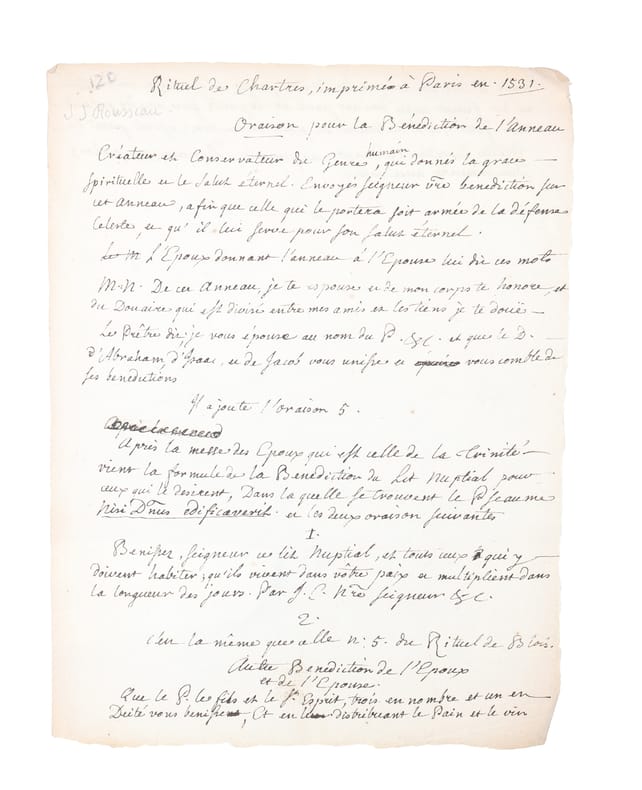 120
J. J. Rousseau
Rituel de Chartres, imprimé à Paris en. 1531.
Oraison pour la Bénédiction de l'anneau
Créateur et Conservateur du Genre humain, qui donnés la grace
Spirituelle et le Salut éternel. Envoyés Seigneur vtre benediction sur
cet anneau, afin que celle qui le portera soit armée de la défense
Celeste, et qu'il lui serve pour son salut éternel.
L'Epoux donnant l'anneau à l'Epouse lui dit ces mots
M.N. De cet Anneau, je te espouse et de mon corps te honore, et
du Douaire qui est divisé entre mes amis et les tiens je te douë
Le Prêtre dit je vous épouse au nom du P. &c. et que le D.
d'Abraham d'Isaac, et de Jacob vous unisse et vous comble de
ses benedictions
Il ajoute l'oraison 5.
Après la messe des Epoux qui est celle de la Trinité
vient la formule de la Benediction du Lit Nuptial pour
ceux qui le desirent, Dans la quelle se trouvent le Pseaume
Nisi Dnus edificaverit. et les deux oraison suivantes
I.
Benissez, Seigneur ce lit Nuptial, et touts ceux qui y
doivent habiter; qu'ils vivent dans vôtre paix et multiplient dans
la longueur des jours. Par J. C. Nre Seigneur &c.
2.
c'est la même que celle n. 5. du Rituel de Blois.
Autre Benediction de l'Epoux
et de l'Epouse.
Que le P. le fils et le St. Esprit, trois en nombre et un en
Deité vous benisse, Et en distribuant le Pain et le vin